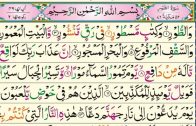 بِسْمِ اللهِ الرَّحْمٰنِ الرَّحِيْمِ
وَالطُّوْرِ ۙ وَكِتٰبٍ مَّسْطُوْرٍ ۙ فِيْ رَقٍّ مَّنْشُوْرٍ ۙ وَّالْبَيْتِ الْمَعْمُوْرِ ۙ
وَالسَّقْفِ الْمَرْفُوْعِ ۙ وَالْبَحْرِ الْمَسْجُوْرِ ۙ اِنَّ عَذَابَ رَبِّكَ لَوَاقِعٌ ۙ
مَّا لَهٗ مِنْ دَافِعٍ ۙ يَّوْمَ تَمُوْرُ السَّمَآءُ مَوْرًا ۙ وَّتَسِيْرُ الْجِبَالُ سَيْرًا
فَوَيْلٌ يَّوْمَئِذٍ لِّلْمُكَذِّبِيْنَ ۙ الَّذِيْنَ هُمْ فِيْ خَوْضٍ يَّلْعَبُوْنَ ۘ يَوْمَ
يُدَعُّوْنَ اِلٰى نَارِ جَهَنَّمَ دَعًّا ؕ هٰذِهِ النَّارُ الَّتِيْ كُنْتُمْ